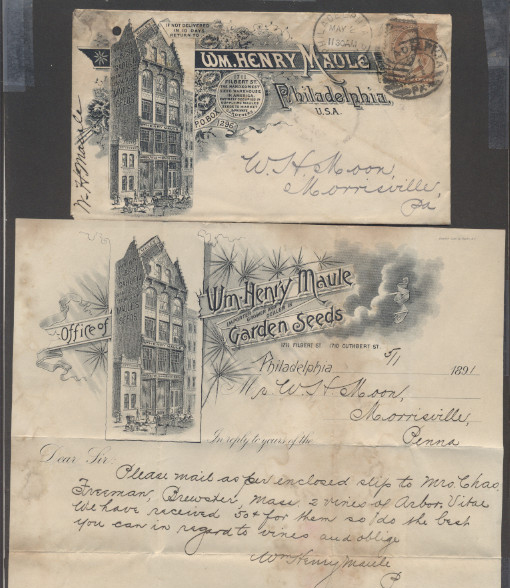 IF NOT DELIVERED
IN 10 DAYS
RETURN TO
WM. HENRY MAULE
1711
FILBERT ST.
THE HANDSOMEST
SEED WAREHOUSE
IN AMERICA
Philadelphia,
U.S.A.
P.O. BOX
1296
MAY 2
1130AM
PA
W H Maule
W. H. Moon,
Morrisville,
Pa
Office of
Wm. Henry Maule
DEALER IN
Garden Seeds
1711 FILBERT ST. 1710 CUTHBERT ST.
Philadelphia 5/1 1891
Mr W. H Moon,
Morrisville,
Penna
In reply to yours of the
Dear Sir:
Please mail as per enclosed slip to Mrs. Chas.
Freeman, Brewster, Mass 2 vines of Arbor. Vitae
We have received 50¢ for them so do the best
you can in regard to vines and oblige
Wm Henry Maule
P